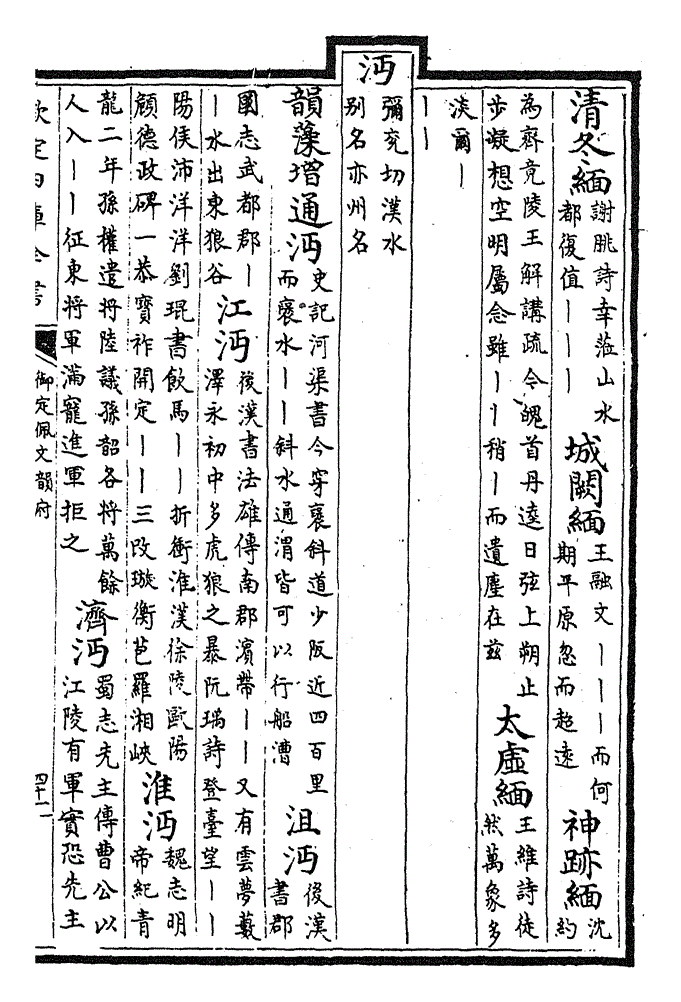 清冬緬謝朓詩幸蒞山水都復值丨丨丨　城闕緬王融文丨丨丨而何期平原忽而超遠　神跡緬沈約
為齊竟陵王解講疏令魄首丹逵日弦上朔止步凝想空明屬念雖丨丨稍丨而遺塵在茲　太虛緬王維詩徒然萬象多
淡爾丨丨丨
沔彌兖切漢水别名亦州名
韻藻增通沔史記河渠書今穿褒斜道少阪近四百里而褒水丨丨斜水通渭皆可以行船漕　沮沔後漢書郡
國志武都郡丨丨水出東狼谷　江沔後漢書法雄傳南郡濱帶丨丨又有雲夢藪澤永初中多虎狼之暴阮瑀詩登臺望丨丨
陽侯沛洋洋劉琨書飲馬丨丨折衝淮漢徐陵歐陽頠德政碑一恭寶祚開定丨丨三改璇衡苞羅湘峽　淮沔魏志明帝紀青
龍二年孫權遣將陸議孫韶各將萬餘人入丨丨征東將軍滿寵進軍拒之　濟沔蜀志先主傳曹公以江陵有軍實恐先主
欽定四庫全書　御定佩文韻府　四十二